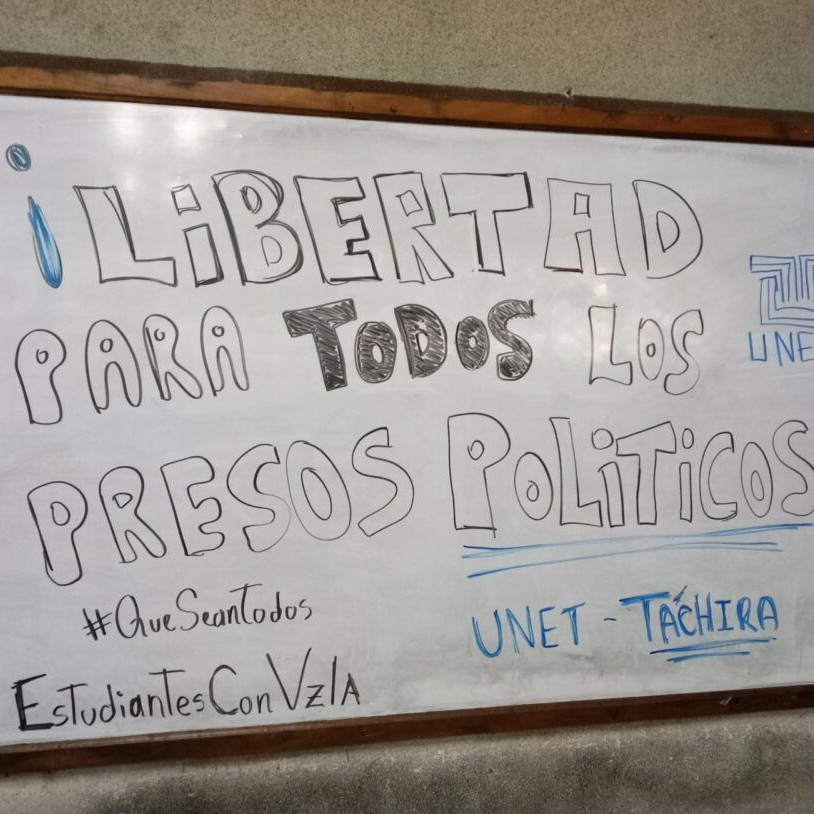 ¡LiBERTAD
PARA TODOS LOS
PRESOS POLiTiCOS
#QueSeanTodos
EstudiantesConVzlA
UNE
UNET - TÁCHIRA